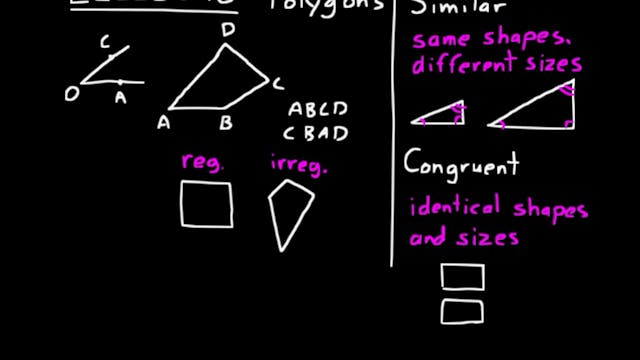 Polygons
C
O
A
D
C
A
B
ABCD
CBAD
reg.
irreg.
Similar
same shapes,
different sizes
Congruent
identical shapes
and sizes